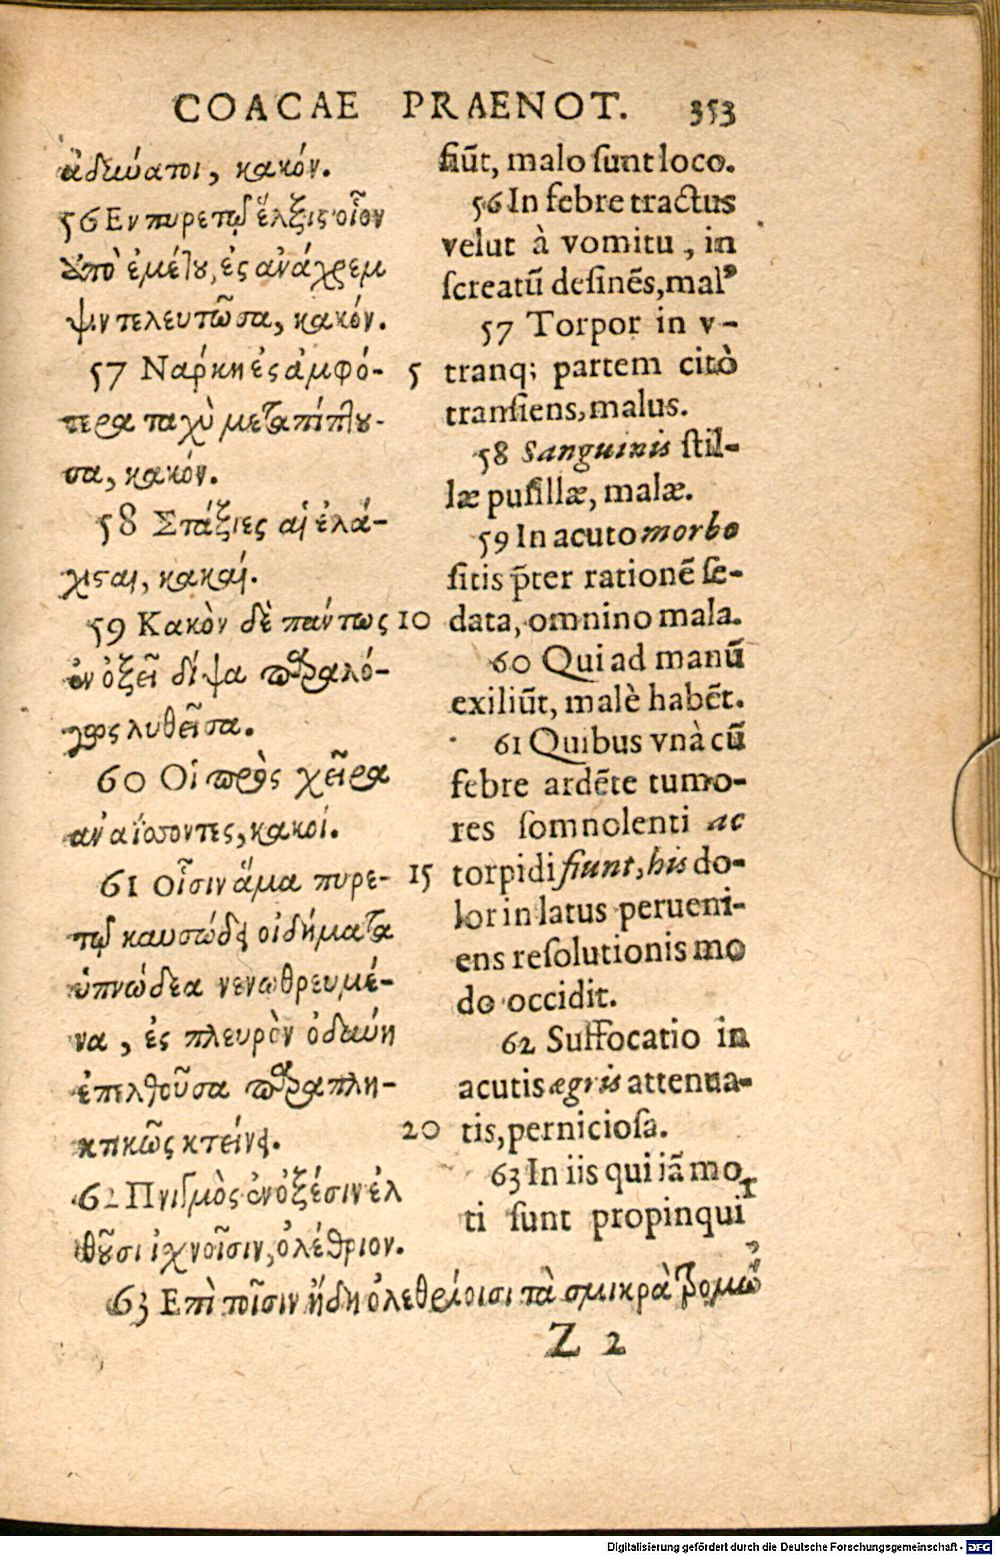 COACAE PRAENOT. 353
ἀδύνατοι, κακόν.
56 Εν πυρετῷ ἕλξις οἷον
ἀπὸ ἐμέτου, ἐς ἀνάχρεμ
ψιν τελευτῶσα, κακόν.
57 Ναρκη ἐς ἀμφό-
τερα ταχὺ μεταπίπτου-
σα, κακόν.
58 Στάξιες αἱ ἐλά-
χισται, κακαί.
59 Κακὸν δὲ πάντως
ἐν ὀξεῖ δίψα παραλό-
γως λυθεῖσα.
60 Οἱ πρὸς χεῖρα
αναΐσσοντες, κακοί.
61 Οἷσιν ἅμα πυρε-
τῷ καυσώδει οἰδήματα
ὑπνώδεα νενωθρευμέ-
να, ἐς πλευρὸν ὀδύνη
ἐπελθοῦσα παραπλη-
κτικῶς κτείνει.
62 Πνιγμὸς ἐν ὀξέσιν ἐλ
θοῦσι ἰχνοῖσιν, ὀλέθριον.
63 Επὶ τοῖσιν ἤδη ὀλεθρίοισι τὰ σμικρὰ τρομώ
5
10
15
20
fiūt, malo sunt loco.
56 In febre tractus
velut à vomitu, in
screatū desinēs, malꝰ
57 Torpor in v-
tranq; partem citò
transiens, malus.
58 Sanguinis stil-
læ pusillæ, malæ.
59 In acuto morbo
sitis p̄ter rationē se-
data, omnino mala.
60 Qui ad manū
exiliūt, malè habēt.
61 Quibus vnà cū
febre ardēte tumo-
res somnolenti ac
torpidi fiunt, his do-
lor in latus perueni-
ens resolutionis mo
do occidit.
62 Suffocatio in
acutis ægris attenua-
tis, perniciosa.
63 In iis qui iā mo
r
ti sunt propinqui
Z 2
Digitalisierung gefördert durch die Deutsche Forschungsgemeinschaft - DFG